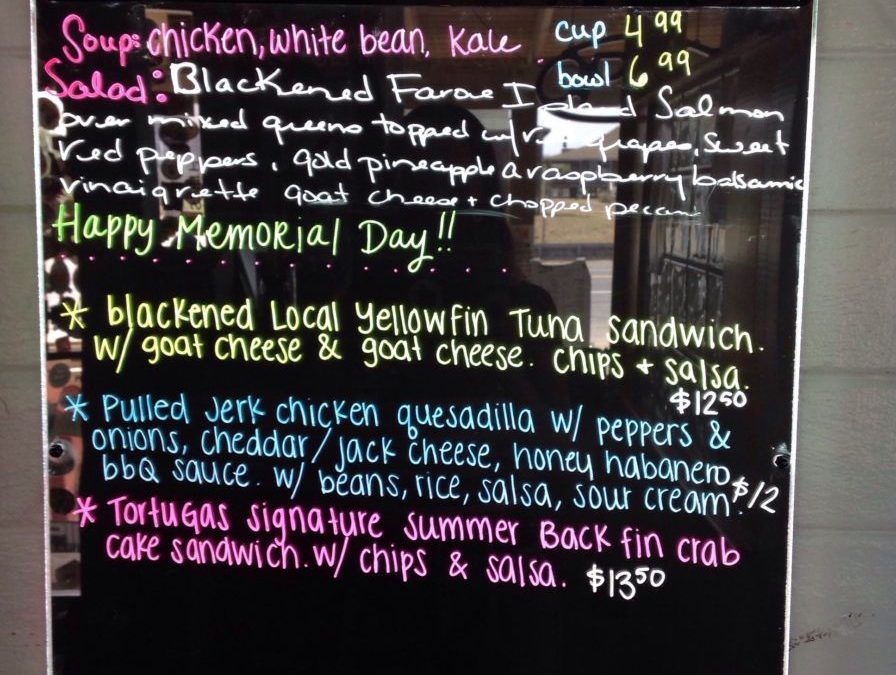 Soup: chicken, white bean, Kale cup 4 99
bowl 6 99
Salad: Blackened Faroe Island Salmon
over mixed greens topped w/ grapes, sweet
red peppers, gold pineapple & raspberry balsamic
vinaigrette goat cheese + chopped pecans
Happy Memorial Day!!
* blackened Local Yellowfin Tuna Sandwich.
w/ goat cheese & goat cheese. chips + salsa.
$12 50
* Pulled Jerk chicken quesadilla w/ peppers &
onions, cheddar/jack cheese, honey habanero
bbQ sauce. w/ beans, rice, salsa, sour cream. $12
* Tortugas signature summer Back fin crab
cake sandwich. w/ chips & salsa. $13 50